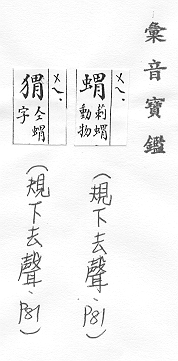 彙音寶鑑
ㄨㄟˋ
蝟
莿蝟
動物
(規下去聲、P81)
ㄨㄟˋ
猬
仝蝟
字
(規下去聲、P81)